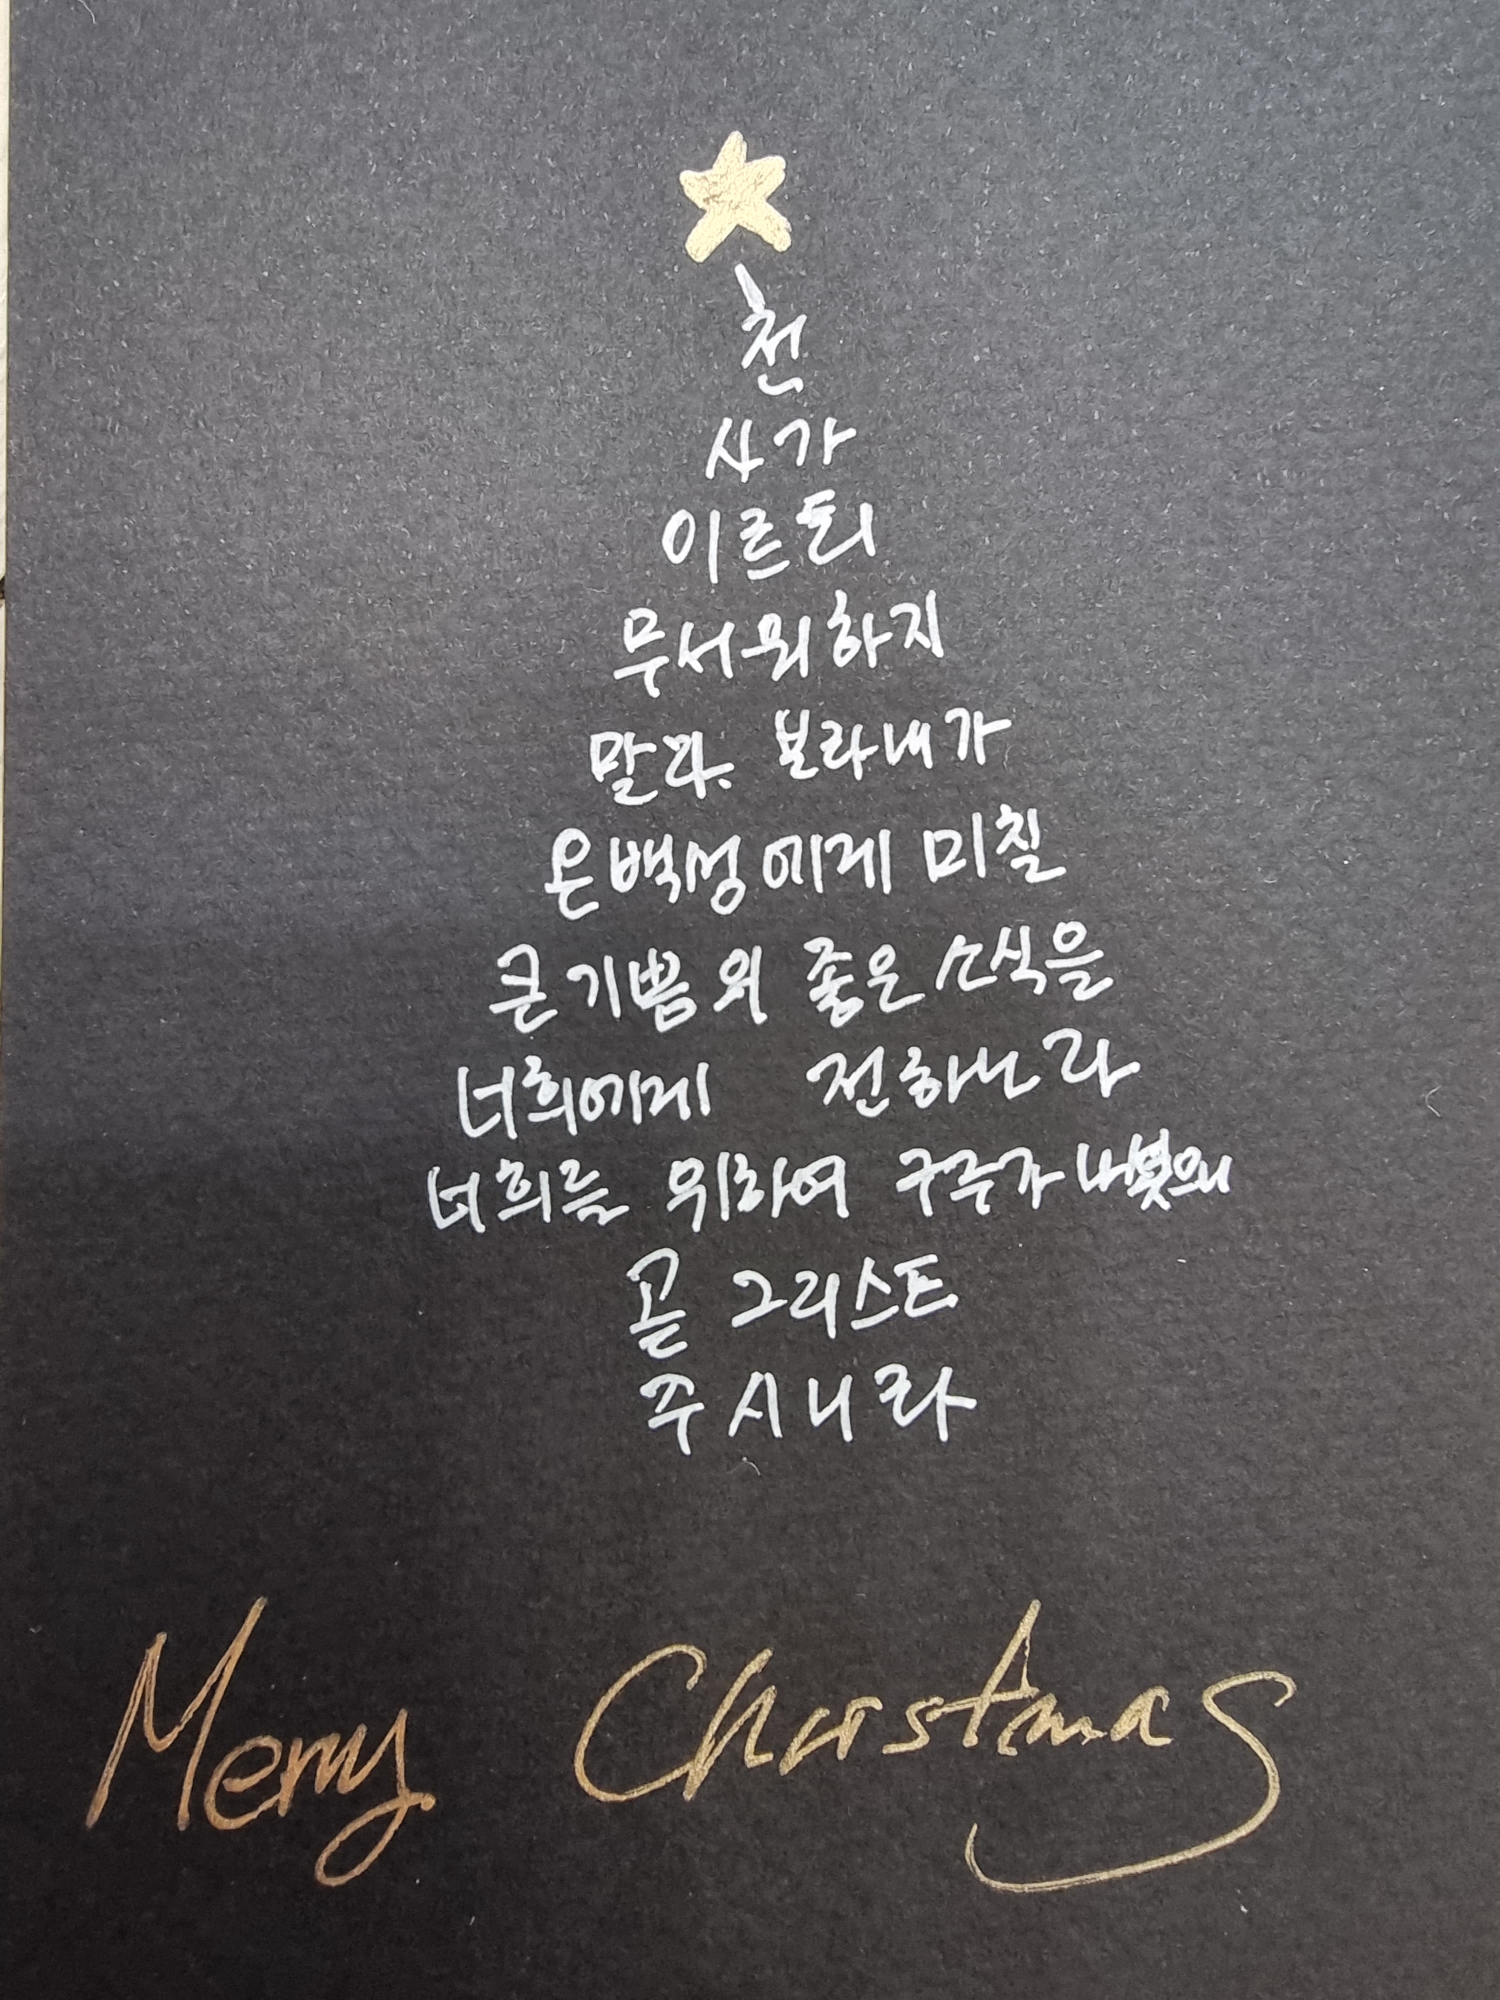 천
사가
이르되
무서워하지
말라. 보라 내가
온 백성에게 미칠
큰 기쁨의 좋은 소식을
너희에게 전하노라
너희를 위하여 구주가 나셨으니
곧 그리스도
주시니라
Merry Christmas